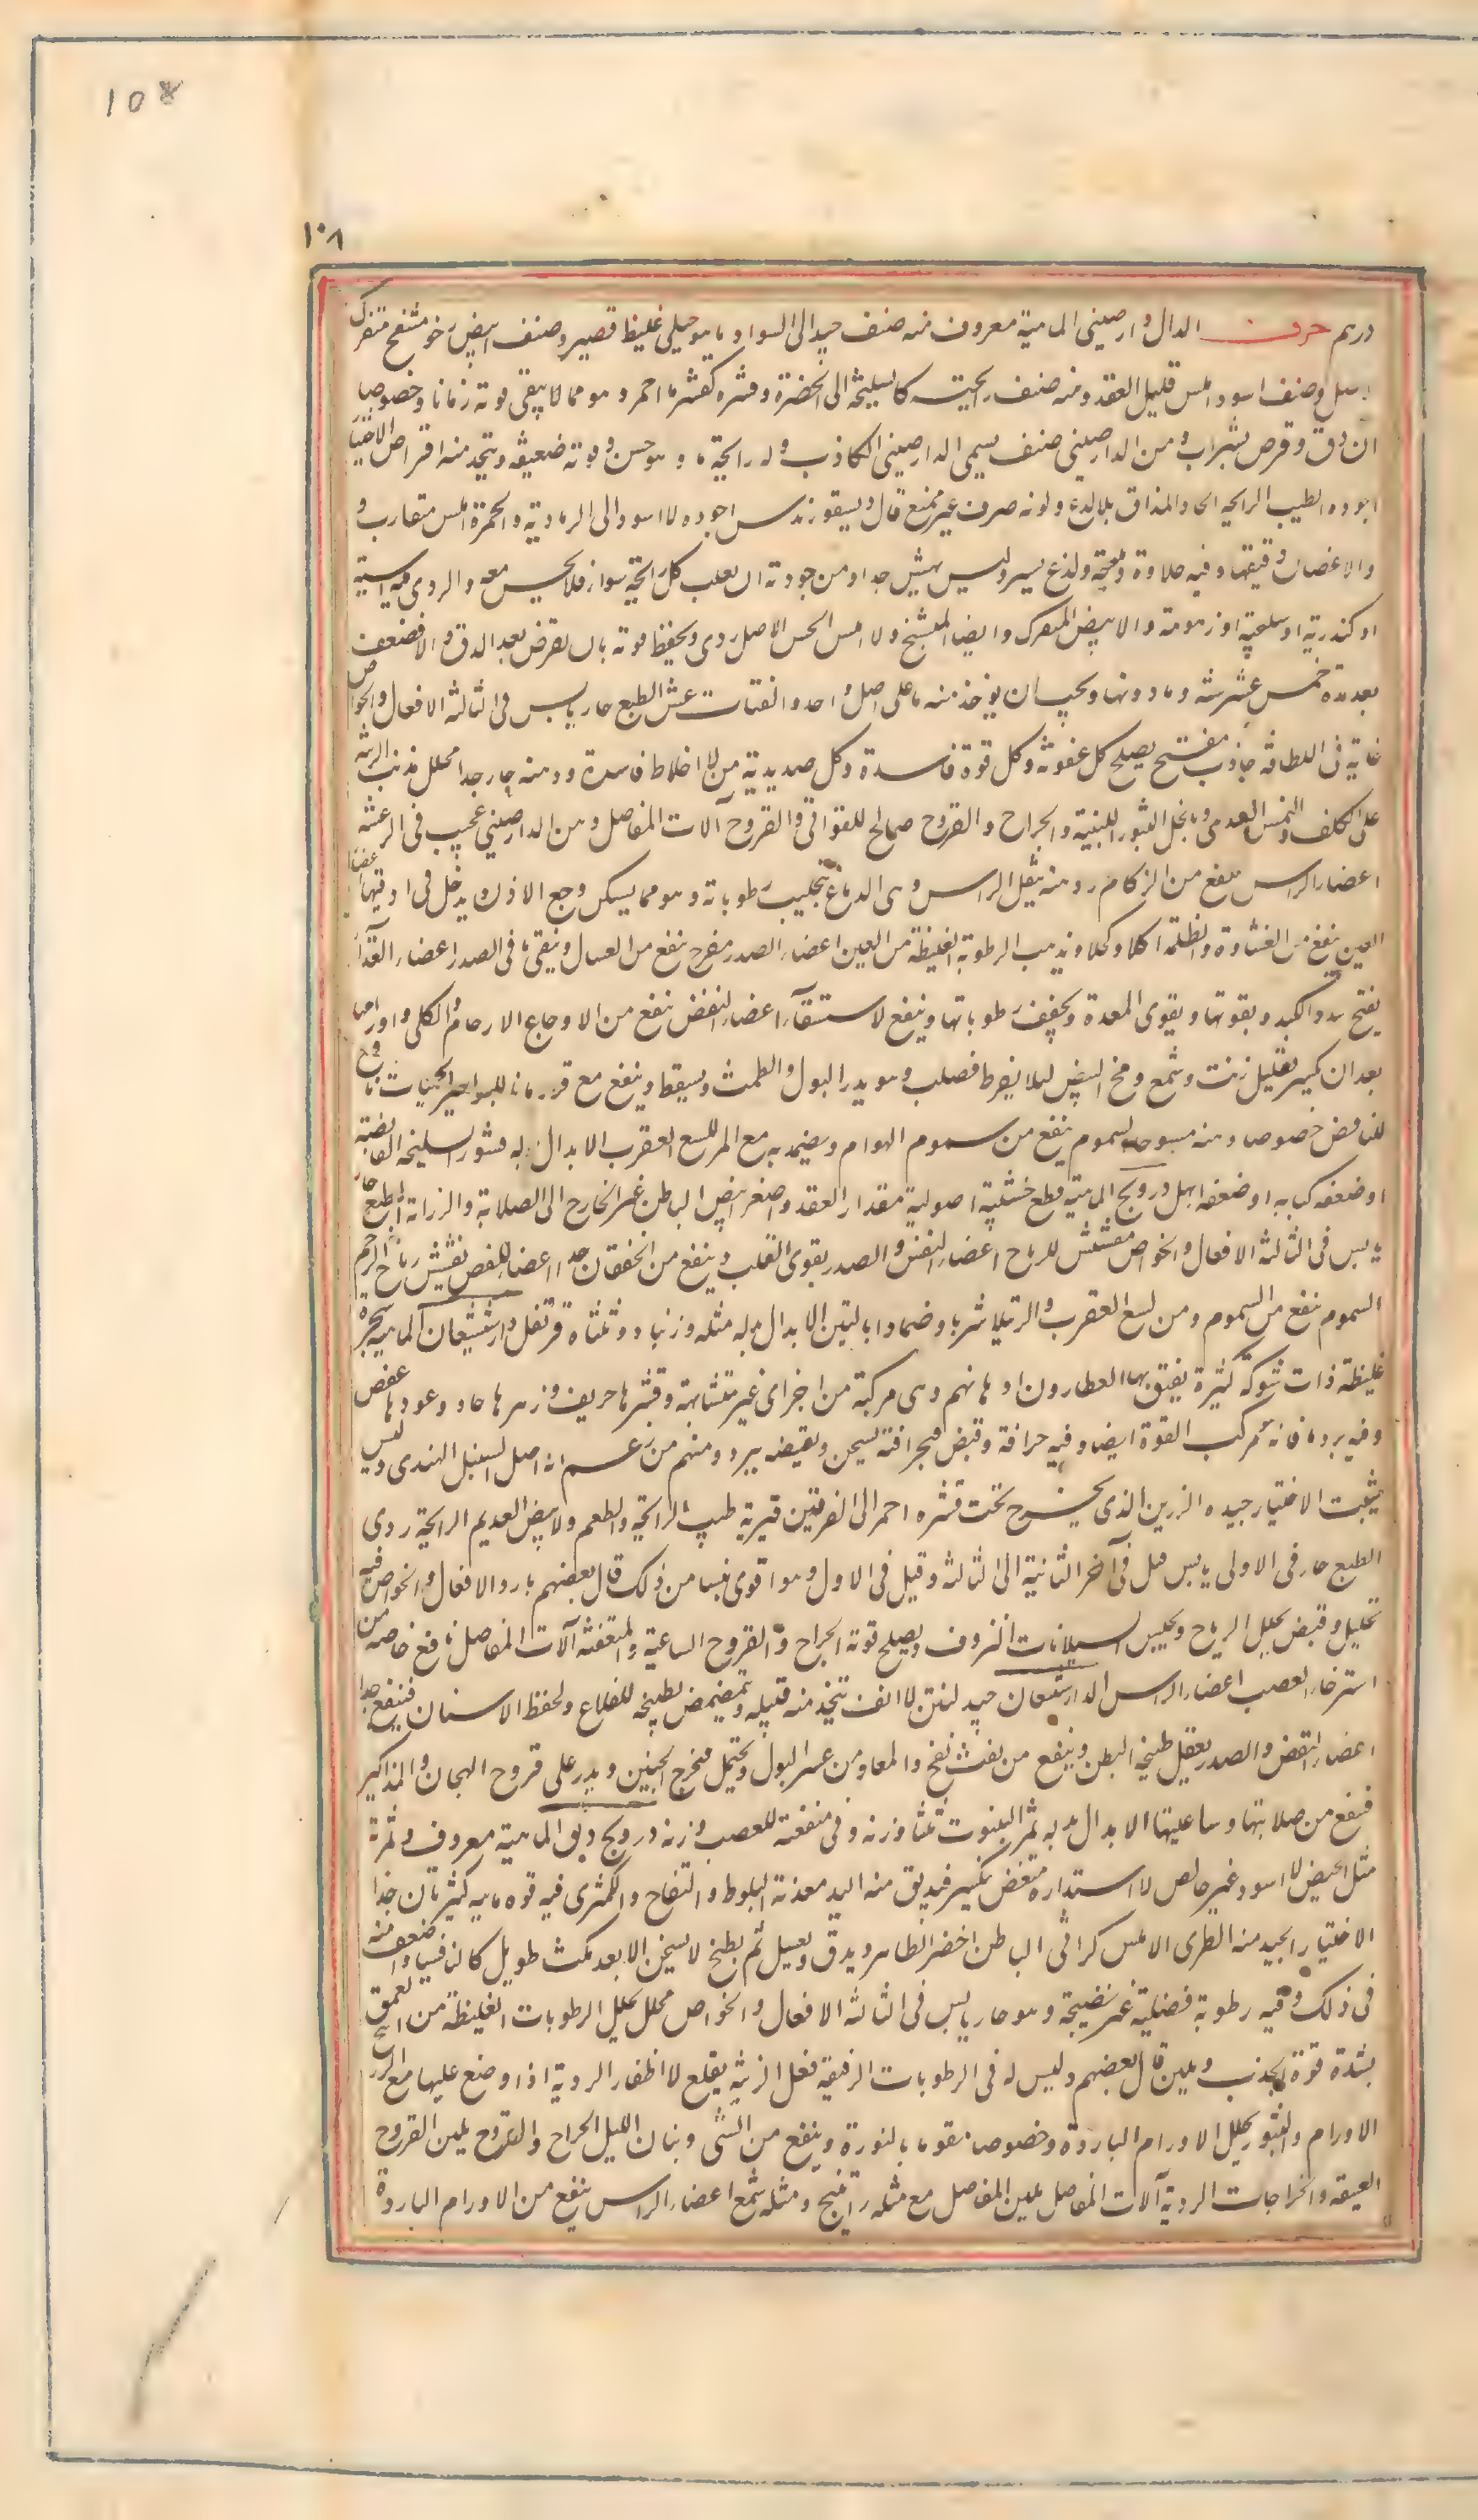 108
١٠٨
درهم حرف الدال دارصيني الماهية معروف منه صنف جيد الى السواد ما هو جبلي غليظ قصير وصنف ابيض رخو منتفخ متفرك
وصنف اسود املس قليل العقد ومنه صنف رايحته كالسليخة الى الخضرة وقشره كقشرها احمر وهو مما لا يبقى قوته زمانا وخصوصا
ان دق وقرص بشراب ومن الدارصيني صنف يسمى الدارصيني الكاذب وله رايحة ما وهو حسن وقوته ضعيفة ويتخذ منه اقراص الاختيار
اجوده الطيب الرايحة الحاد المذاق بلا لذع ولونه صرف غير ممتزج قال ديسقوريدس اجوده الاسود الى الرمادية والحمرة املس متقارب
والاغصان دقيقها وفيه حلاوة وملوحة ولذع يسير وليس بهش جدا ومن جودته ان يغلب كل رايحة سواه فلا يحس معه والردي فيه
او كندرية او سليخية او زهومة والابيض المتفرك وايضا المتشنج والاملس الاصل ردي ويحفظ قوته بان يقرض بعد الدق والا فضعف
بعد مدة خمس عشر سنة وما دونها ويجب ان يؤخذ منه ما على اصل واحد والفتات غش الطبع حار يابس في الثالثة الافعال والخواص
غاية في اللطافة جاذب مفتح يصلح كل عفونة وكل قوة فاسدة وكل صديدية من الاخلاط فاسدة ودهنه حار جدا محلل مذيب الزينة
على الكلف والنمش العدسي وبخل البثور اللبنية والجراح والقروح صالح للقوابي والقروح آلات المفاصل دهن الدارصيني عجيب في الرعشة
اعضاء الراس ينفع من الزكام ودهنه ثقيل الراس وهي الدماغ بتجليب رطوباته وهو مما يسكن وجع الاذن يدخل في ادويتها اعضاء
العين ينفع من الغشاوة والظلمة اكلا وكحلا ويذهب الرطوبة الغليظة من العين اعضاء الصدر مفرح ينفع من السعال وينقي ما في الصدر اعضاء الغذاء
يفتح سدد الكبد ويقويها ويقوي المعدة ويجفف رطوباتها وينفع الاستسقاء اعضاء النفض ينفع من الاوجاع الارحام والكلى واورامها
بعد ان كسر بقليل زيت وشمع ومخ البيض ليلا يفرط فصلب وهو يدر البول والطمث ويسقط وينفع مع قردمانا للبواسير الحميات نافع
للنافض خصوصا دهنه مسوحا السموم ينفع من سموم الهوام ويضمد به مع المر للسع العقرب الابدال بدله قشور السليخة القابضة
او ضعفه كبابه او ضعفه ابهل درونج الماهية قطع خشبية اصولية مقدار العقد واصغر ابيض الباطن اغبر الخارج الى الصلابة والرزانة الطبع حار
يابس في الثالثة الافعال والخواص مفشش للرياح اعضاء النفس والصدر يقوي القلب وينفع من الخفقان جدا اعضاء النفض تفشيش رياح الرحم
السموم ينفع من السموم ومن لسع العقرب والرتيلا شربا وضمادا بالتين الابدال بدله مثله وزنباد وثلثاه قرنفل دارشيشعان الماهية شجرة
غليظة ذات شوكة كثيرة يعفق بها العطارون ادهانهم وهي مركبة من اجزاي غير متشابهة وقشرها حريف وزهرها حاد وعودها عفص
وفيه برد ما فانه مركب القوة ايضا وفيه حرافة وقبض فبحرافته يسخن وبقبضه يبرد ومنهم من زعم انه اصل السنبل الهندي وليس
يثبت الاختيار جيده الرزين الذي يخرج تحت قشره احمر الى الفرفيرية طيب الرايحة والطعم والابيض العديم الرايحة ردي
الطبع حار في الاولى يابس قيل في آخر الثانية الى الثالثة وقيل في الاول وهو اقوى يبسا من ذلك قال بعضهم بارد الافعال والخواص فيه
تحليل وقبض يحلل الرياح ويحبس السيلانات النزوف ويصلح قوته الجراح والقروح الساعية والمتعفنة آلات المفاصل نافع خاصة من
استرخاء العصب اعضاء الراس الدارشيشعان جيد لنتن الانف تتخذ منه فتيلة ويتمضمض بطبيخه للقلاع ولحفظ الاسنان فينفع جدا
اعضاء النفض والصدر يعقل طبيخه البطن وينفع من نفث نفخ والمعا ومن عسر البول ويحتمل فيخرج الجنين ويدر على قروح العجان والمذاكير
فينفع من صلابتها وساعيتها الابدال بدله ثمر الينبوت ثلثا وزنه وفي منفعته للعصب وزنه درونج دبق الماهية معروف وثمرة
مثل الحمص الاسود غير خالص الاستدارة متغضن يكسر فيدبق منه اليد معدنه البلوط والتفاح والكمثرى فيه قوه مايية كثيرتان جدا
الاختيار الجيد منه الطري الاملس كراثي الباطن اخضر الظاهر ويدق ويغسل ثم يطبخ لا يسخن الا بعد مكث طويل كالثافسيا واضعف منه
في ذلك وفيه رطوبة فضلية غير نضيجة وهو حار يابس في الثالثة الافعال والخواص محلل يحلل الرطوبات الغليظة من العمق
بشدة قوة الجذب ويلين قال بعضهم وليس له في الرطوبات الرقيقة فعل الزينة يقلع الاظفار الردية اذا وضع عليها مع الزرنيخ
الاورام والبثور يحلل الاورام الباردة وخصوصا مقوما بالنورة وينفع من الشى وبنات الليل الجراح والقروح يلين القروح
العتيقة والخراجات الردية آلات المفاصل يلين المفاصل مع مثله راتينج ومثله شمع اعضاء الراس ينفع من الاورام الباردة